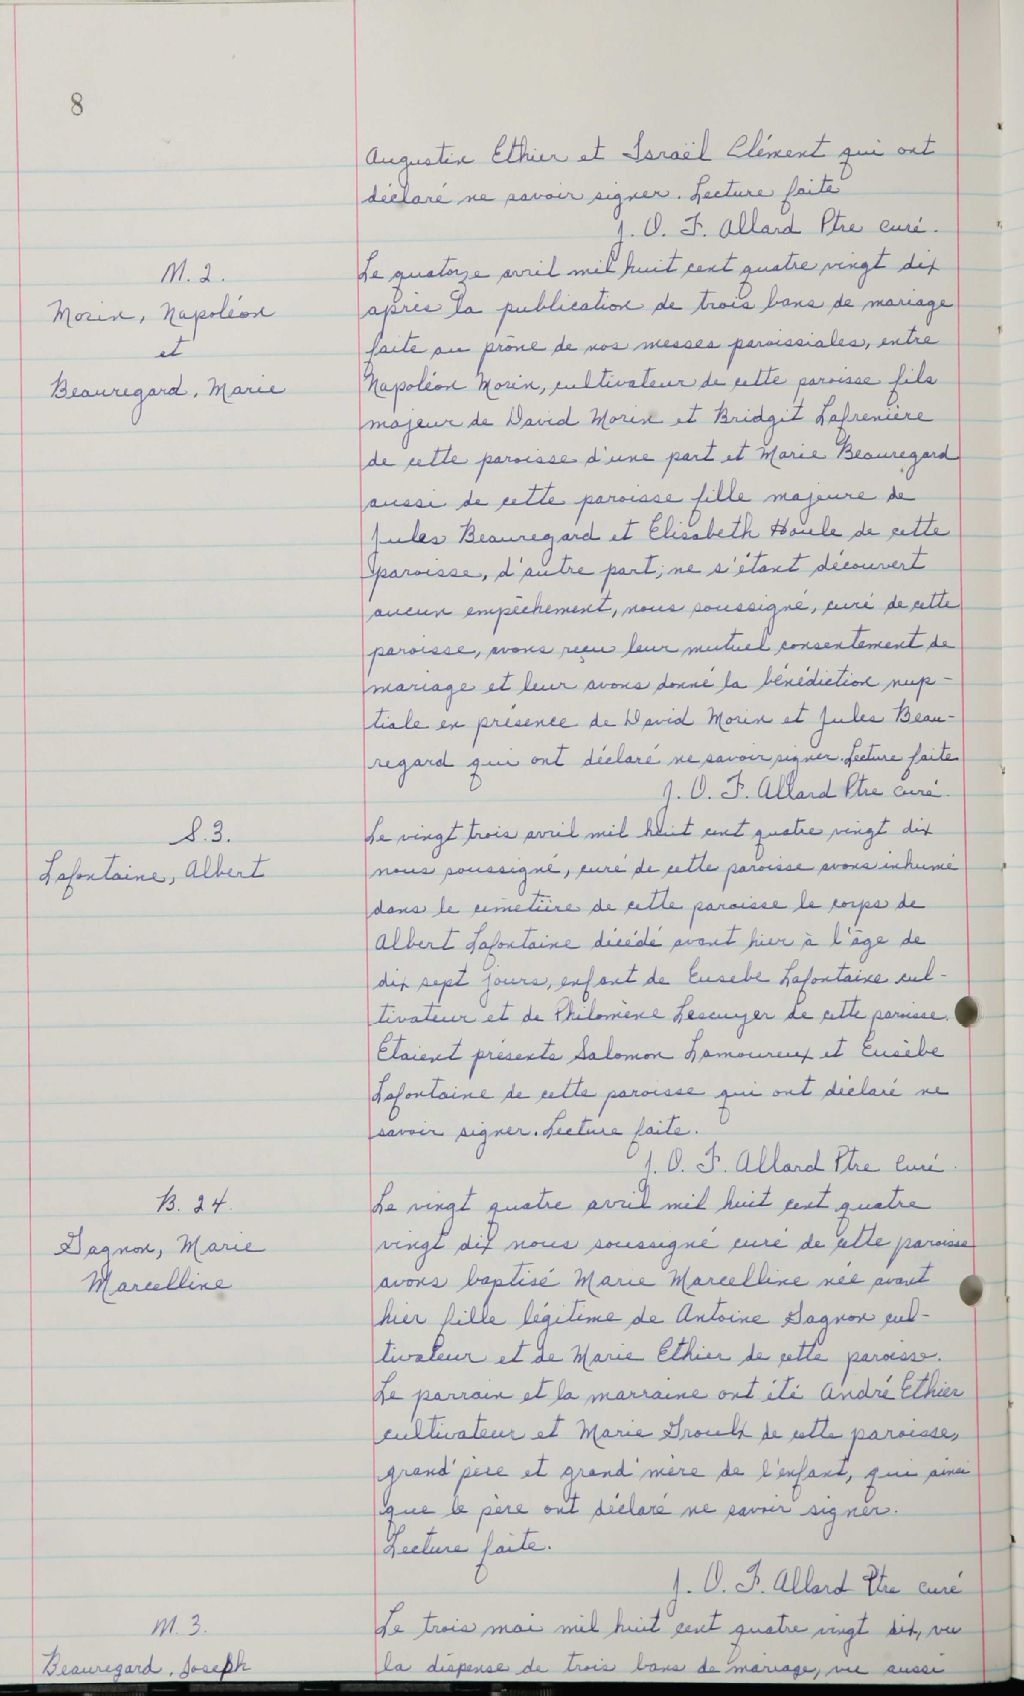 8
Augustin Ethier et Israël Clément qui ont
déclaré ne savoir signer. Lecture faite
J. O. F. Allard Ptre curé.
M. 2.
Morin, Napoléon
et
Beauregard, Marie
Le quatorze avril mil huit cent quatre vingt dix
après la publication de trois bans de mariage
faite au prône de nos messes paroissiales, entre
Napoléon Morin, cultivateur de cette paroisse fils
majeur de David Morin et Bridgit Lafrenière
de cette paroisse d'une part et Marie Beauregard
aussi de cette paroisse fille majeure de
Jules Beauregard et Elisabeth Houle de cette
paroisse, d'autre part; ne s'étant découvert
aucun empêchement, nous soussigné, curé de cette
paroisse, avons reçu leur mutuel consentement de
mariage et leur avons donné la bénédiction nup-
tiale en présence de David Morin et Jules Beau-
regard qui ont déclaré ne savoir signer. Lecture faite
J. O. F. Allard Ptre curé.
S. 3.
Lafontaine, Albert
Le vingt trois avril mil huit cent quatre vingt dix
nous soussigné, curé de cette paroisse avons inhumé
dans le cimetière de cette paroisse le corps de
Albert Lafontaine décédé avant hier à l'âge de
dix sept jours, enfant de Eusebe Lafontaine cul-
tivateur et de Philomène Lescuyer de cette paroisse.
Etaient présents Salomon Lamoureux et Eusèbe
Lafontaine de cette paroisse qui ont déclaré ne
savoir signer. Lecture faite.
J. O. F. Allard Ptre Curé.
B. 24.
Gagnon, Marie
Marcelline
Le vingt quatre avril mil huit cent quatre
vingt dix nous soussigné curé de cette paroisse
avons baptisé Marie Marcelline née avant
hier fille légitime de Antoine Gagnon cul-
tivateur et de Marie Ethier de cette paroisse.
Le parrain et la marraine ont été André Ethier
cultivateur et Marie Groulx de cette paroisse,
grand'père et grand'mère de l'enfant, qui ainsi
que le père ont déclaré ne savoir signer.
Lecture faite.
J. O. F. Allard Ptre curé
M. 3.
Beauregard, Joseph
Le trois mai mil huit cent quatre vingt dix, vu
la dispense de trois bans de mariage, vu aussi